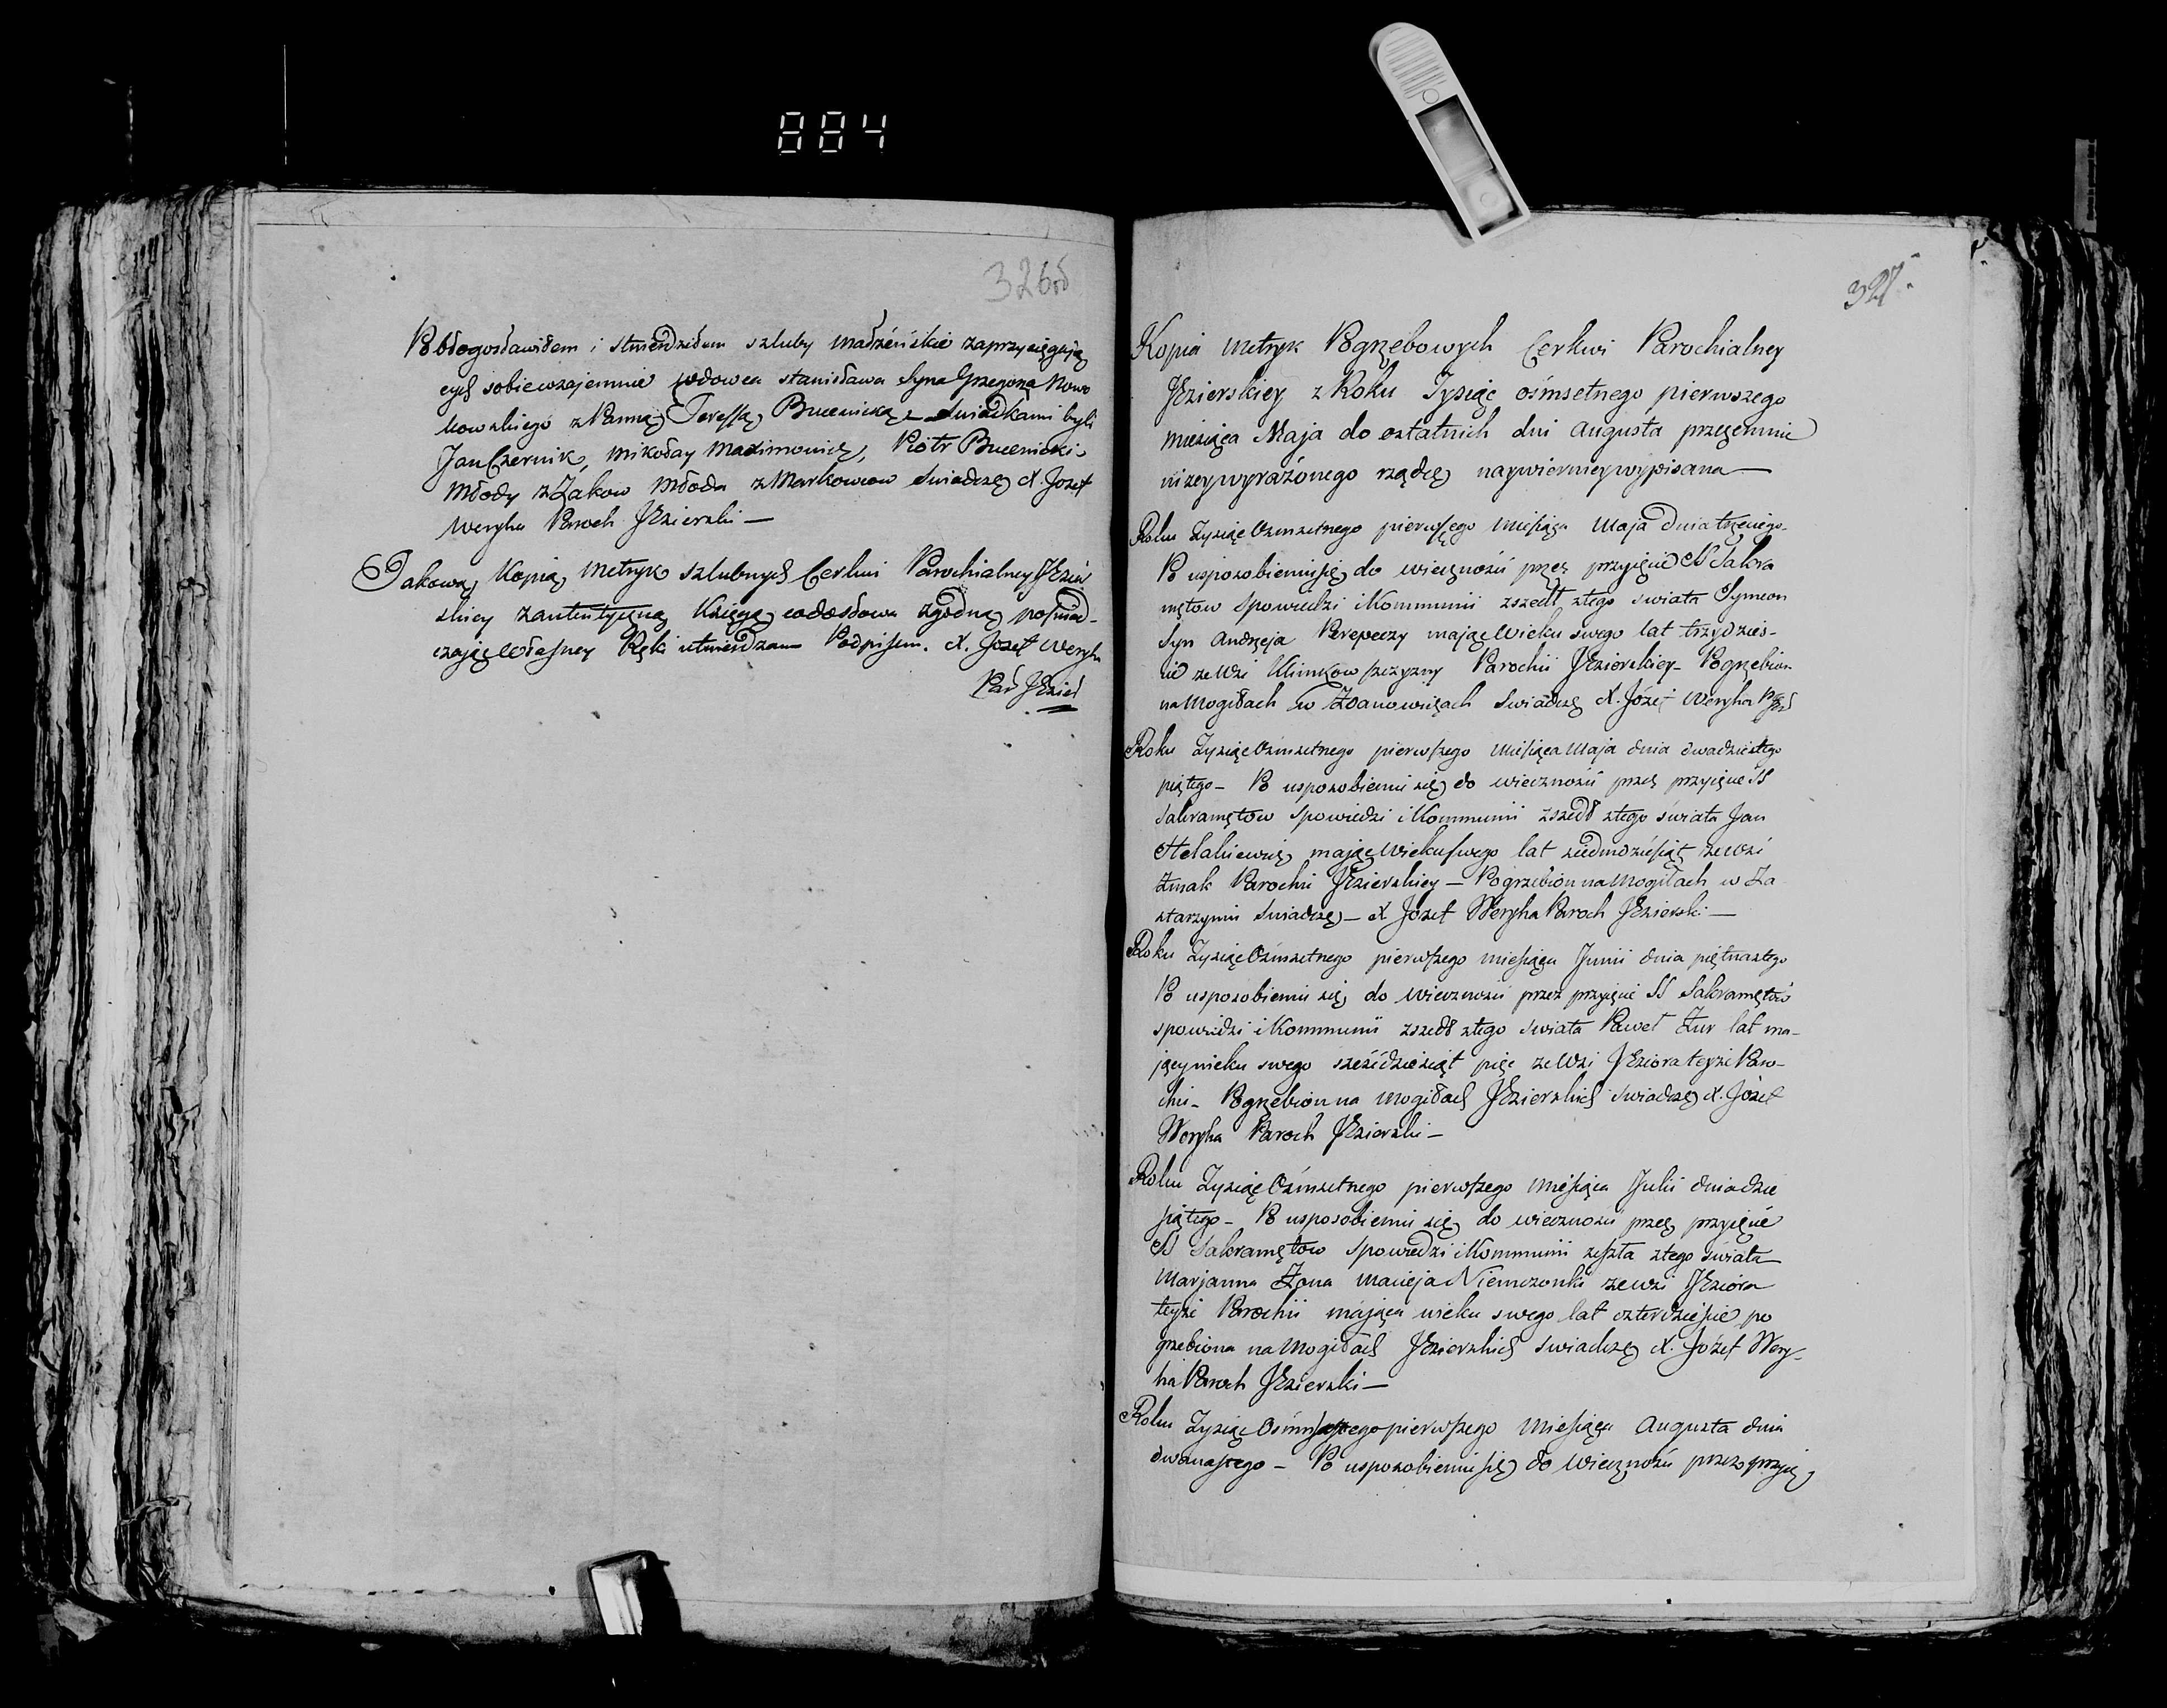 884
326об
Pobłogosławiłem i stwierdziłem szluby małżeńskie zaprzysięgają
cych sobie wzajemnie wdowca Stanisława Syna Grzegorza Nowo
kowskiego z Panną Teressą Bucenicką Swiadkami byli
Jan Czernik, Mikołay Maximowicz, Piotr Bucenicki
Młody z Żakow Młoda z Markowcow Swiadczę X. Jozef
Weryha Paroch JEzierski —
Takową Kopią Metryk szlubnych Cerkwi Parochialney JEzier
skiey z autentyczną Xsięgą co do słowa zgodną poswiad-
czając własney Ręki utwierdzam Podpisem. X. Jozef Weryha
Par JEzier
327.
Kopia Metryk Pogrzebowych Cerkwi Parochialney
JEzierskiey z Roku Tysiąc ośmsetnego pierwszego
miesiąca Maja do ostatnich dni Augusta przezemnie
niżey wyrażonego rządcę naywierniey wypisana —
Roku Tysiąc Osmsetnego pierwszego Miesiąca Maja dnia trzeciego-
Po usposobieniu się do wieczności przez przyięcie SS Sakra
mętow Spowiedzi i Kommunii zszedł z tego swiata Symeon
Syn Andrzeja Perepeczy mając Wieku swego lat trzydzies-
ci ze Wsi Klimkowszczyzny Parochii JEzierskiey - Pogrzebion
na Mogiłach w Żdanowiczach Swiadczę X. Józef Weryha
Roku Tysiąc Osmsetnego pierwszego Miesiąca Maja dnia dwadziestego
piątego - Po usposobieniu się do wieczności przez przyięcie SS
Sakramętow Spowiedzi i Kommunii zszedł z tego świata Jan
Helakiewicz mając Wieku swego lat siedmdziesiąt ze Wsi
Żmak Parochii JEzierskiey — Pogrzebion na Mogiłach w Za
starzyniu Swiadczę — X Jozef Weryha Paroch JEzierski —
Roku Tysiąc Osmsetnego pierwszego miesiąca Junii dnia piętnastego
Po usposobieniu się do wieczności przez przyięcie SS Sakramętow
spowiedzi i Kommunii zszedł z tego swiata Paweł Żur lat ma-
jący wieku swego sześćdziesiąt pięć ze Wsi JEziora teyże Paro-
chii - Pogrzebion na Mogiłach JEzierskich swiadczę X. Józef
Weryha Paroch JEzierski —
Roku Tysiąc Osmsetnego pierwszego Miesiąca Julii dnia dzie
siątego - Po usposobieniu się do wieczności przez przyięcie
SS Sakramętow Spowiedzi i Kommunii zeszła z tego świata
Marjanna Żona Macieja Niemczonki ze wsi JEziora
teyże Parochii mająca wieku swego lat czterdzieście po
grzebiona na Mogiłach JEzierskich swiadczę X. Józef Wery-
ha Paroch JEzierski —
Roku Tysiąc Osmsetnego pierwszego Miesiąca Augusta dnia
dwunastego - Po usposobieniu się do wieczności przez przyię